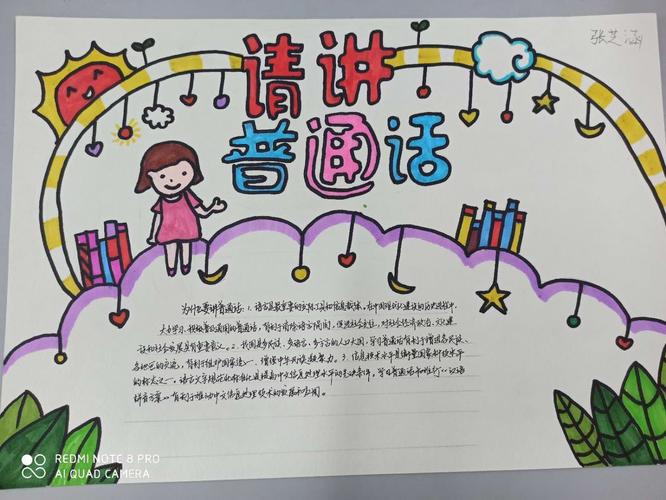 张芝涵
请讲
普通话
为什么要讲普通话：1、语言是最重要的交际工具和信息载体。在中国现代化建设的历史进程中，
大力学习、积极普及通用的普通话，有利于消除语言隔阂，促进社会交往，对社会经济政治、文化建
设和社会发展具有重要意义。2、我国是多民族、多语言、多方言的人口大国，学习普通话有利于增进各民族、
各地区的交流，有利于维护国家统一，增强中华民族凝聚力。3、信息技术水平是衡量国家科技水平
的标志之一。语言文字规范化标准化是提高中文信息处理水平的先决条件，学习普通话和推行《汉语
拼音方案》有利于推动中文信息处理技术的发展和应用。
REDMI NOTE 8 PRO
AI QUAD CAMERA